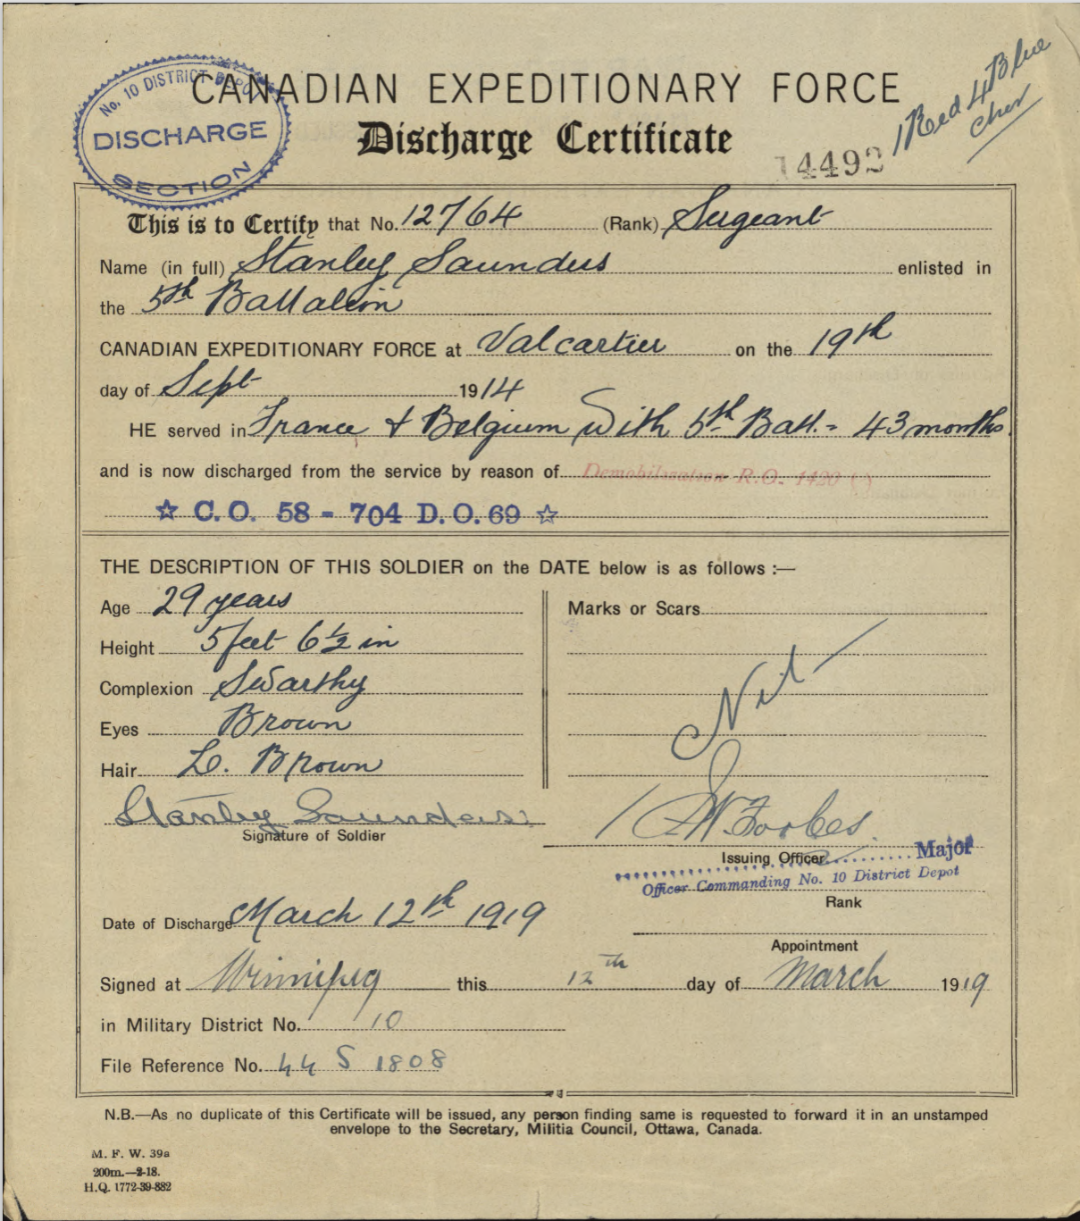 No. 10 DISTRICT DEPOT
DISCHARGE
SECTION
CANADIAN EXPEDITIONARY FORCE
Discharge Certificate
14492
1 Red 4 Blue
chev
This is to Certify that No. 12764 (Rank) Sergeant
Name (in full) Stanley Saunders enlisted in
the 5th Battalion
CANADIAN EXPEDITIONARY FORCE at Valcartier on the 19th
day of Sept 1914
HE served in France & Belgium With 5th Batt. - 43 months.
and is now discharged from the service by reason of Demobilization R.O. 1420
☆ C.O. 58 - 704 D.O. 69 ☆
THE DESCRIPTION OF THIS SOLDIER on the DATE below is as follows :—
Age 29 years
Height 5 feet 6½ in
Complexion Swarthy
Eyes Brown
Hair L. Brown
Marks or Scars
Nil
Stanley Saunders.
Signature of Soldier
Forbes.
Issuing Officer
Major
Officer Commanding No. 10 District Depot
Rank
Date of Discharge March 12th 1919
Appointment
Signed at Winnipeg this 12th day of March 1919
in Military District No. 10
File Reference No. 44 S 1808
N.B.—As no duplicate of this Certificate will be issued, any person finding same is requested to forward it in an unstamped
envelope to the Secretary, Militia Council, Ottawa, Canada.
M. F. W. 39a
200m.—2-18.
H.Q. 1772-39-882